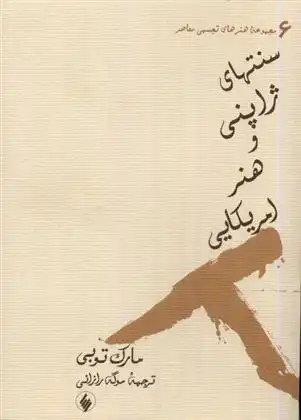 ۶ مجموعهٔ هنرهای تجسمی معاصر
سنتهای
ژاپنی
و
هنر
امریکایی
مارک توبی
ترجمهٔ موگه رازانی